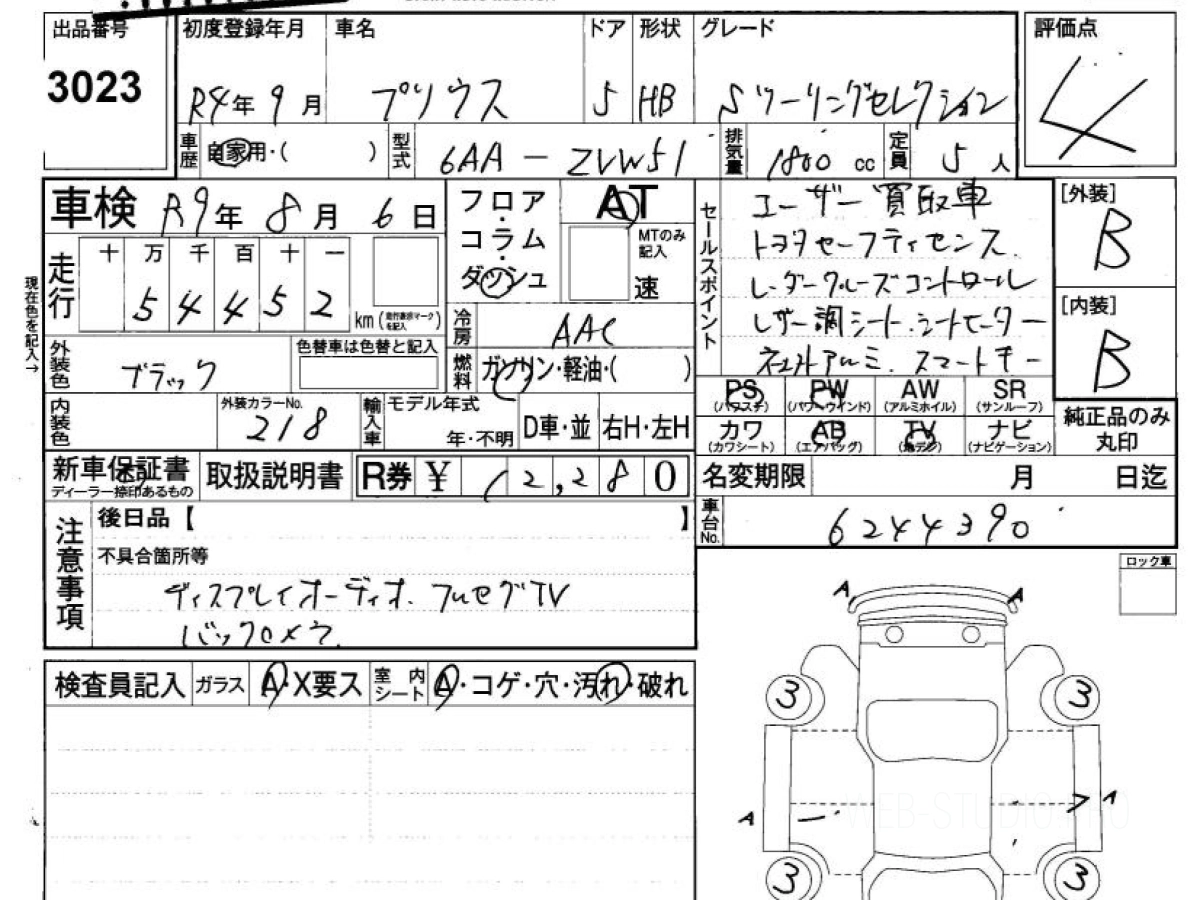 出品番号
3023
初度登録年月
R4年9月
車名
プリウス
ドア
5
形状
HB
グレード
Sツーリングセレクション
評価点
4
車歴
自家用・( )
型式
6AA-ZVW51
排気量
1800 cc
定員
5人
車検 R9年8月6日
走行
十 万 千 百 十 一
5 4 4 5 2
km(走行表示マークを記入)
現在色を記入→
フロア・コラム・ダッシュ
AT
MTのみ記入
速
冷房
AAC
燃料
ガソリン・軽油・( )
外装色
ブラック
色替車は色替と記入
内装色
外装カラーNo.
218
輸入車
モデル年式
年・不明
D車・並
右H・左H
セールスポイント
ユーザー買取車
トヨタセーフティセンス
レーダークルーズコントロール
レザー調シート.シートヒーター
ネエストアルミ.スマートキー
[外装]
B
[内装]
B
PS
(パワステ)
PW
(パワーウインド)
AW
(アルミホイル)
SR
(サンルーフ)
カワ
(カワシート)
AB
(エアバッグ)
TV
(地デジ)
ナビ
(ナビゲーション)
純正品のみ丸印
新車保証書
ディーラー捺印あるもの
取扱説明書
R券 ¥ 12,280
名変期限
月 日迄
車台No.
6244390
注意事項
後日品【 】
不具合箇所等
ディスプレイオーディオ.フルセグTV
バックカメラ.
ロック車
検査員記入
ガラス
A・X要ス
室内シート
A・コゲ・穴・汚れ・破れ
A
A
3
3
A
A
3
3
WEB-STUDIO.PRO